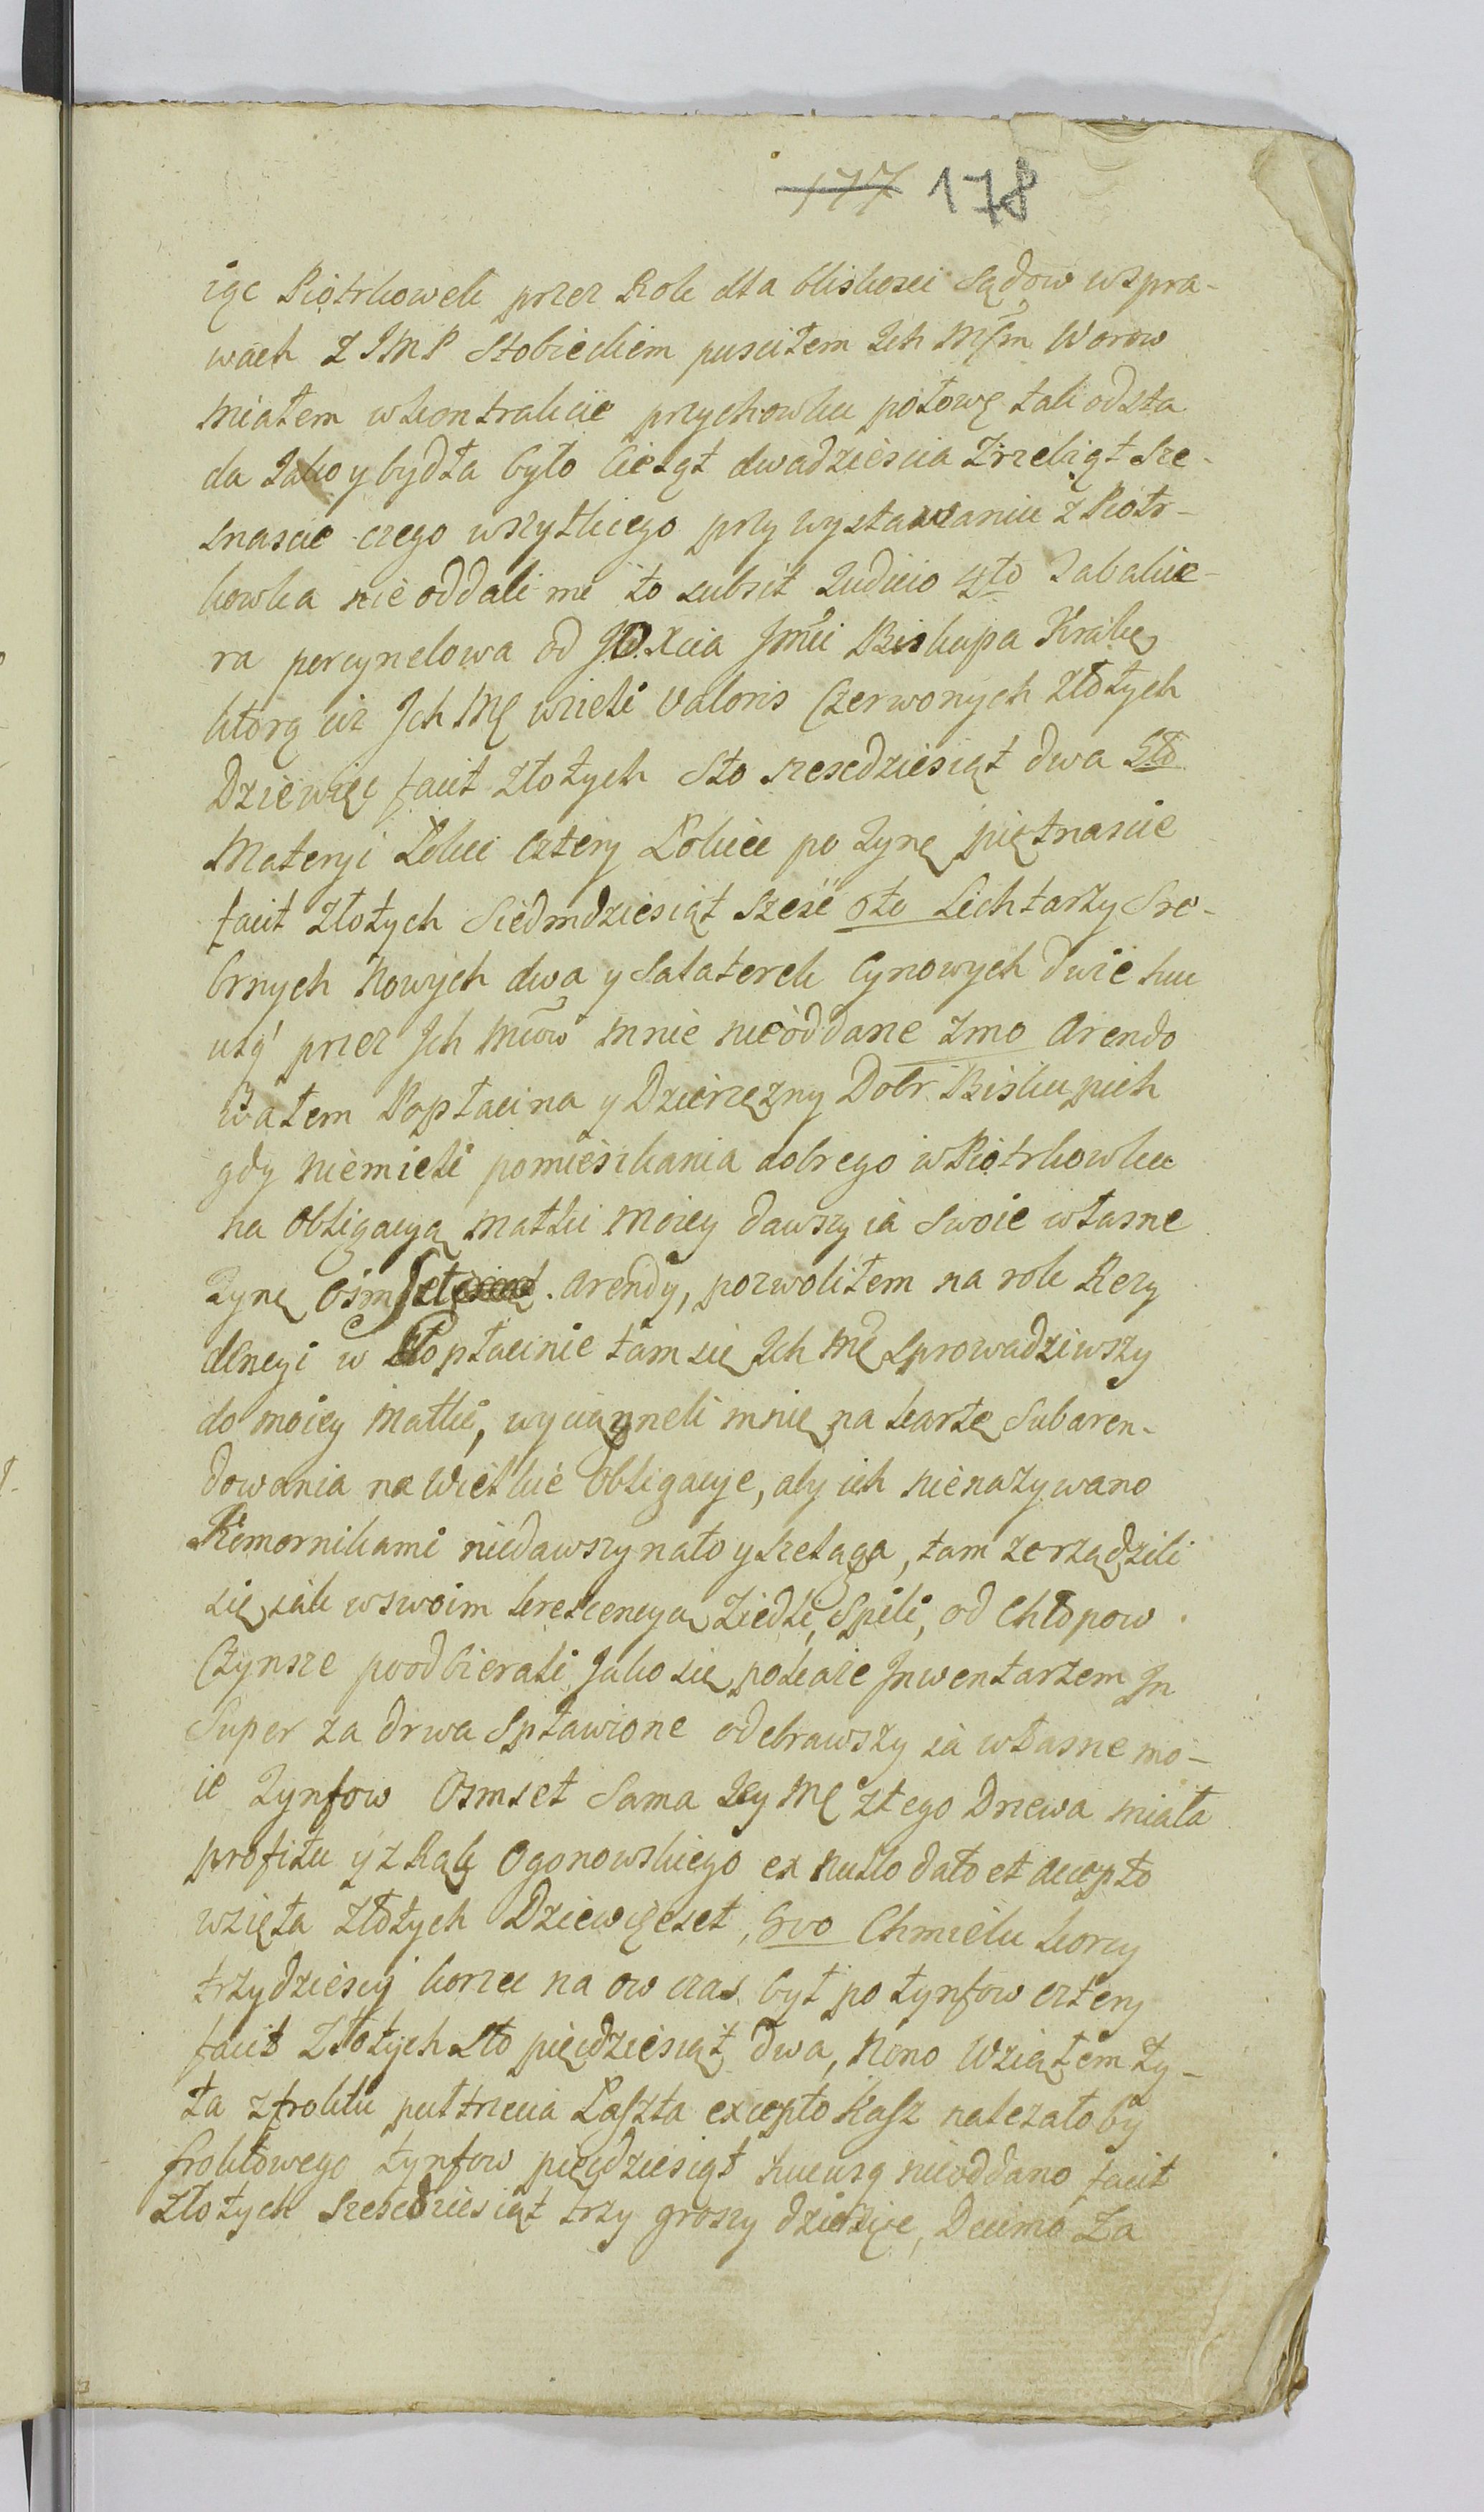 177 178
iąc Piotrkowek przez Rok dla bliskosci Sądow wspra-
wach z JMP Stobieckiem pusciłem Ich Mćm Worow
miałem wkontrakcie przychowku połowę tak odsta
da Jako y bydła było Cieląt dwadziescia Zrzebiąt Sze-
snascie czego wszytkiego przy wystawaniu z Piotr-
kowka nie oddali mi to subsit Iudicio 4to Tabakie-
ra porcynelowa od JO Xcia Jmći Biskupa Krak
ktorą cis Ich Mć wzieli Valoris Czerwonych Złotych
Dziewięc facit Złotych Sto szescdziesiąt dwa 5to
Materyi Łokci Cztery Łokiec po Tynf piętnascie
facit Złotych Siedmdziesiąt szesc 6to Lichtarzy Sre-
brnych Nowych dwa y Salaterek Cynowych dwie huc
usq przez Ich Mciow mnie nieoddane 7mo Arendo
wałem Popłacina y Dzierzązny Dobr Biskupich
gdy niemieli pomieszkania dobrego w Piotrkowku
na Obligacyą matki moiey dawszy ia Swoie własne
Tynf Osmset Arendy, pozwoliłem na rok Rezy
dencyi w Popłacinie tam się Ich Mć sprowadziwszy
do moiey matki, wyciągneli mnie na kartę Subaren-
dowania na wielkie Obligacye, aby ich nienazywano
Komornikami niedawszy nato y szeląga, tam zarządzili
się iak wswoim krescencya Ziedli, Spili, od Chłopow
Czynsze poodbierali Jako się pokaze Inwentarzem In
Super za drwa Spławione odebrawszy ia własne mo-
ie Tynfow Osmset Sama Jey Mć ztego Drzewa miała
profitu y z Rąk Ogonowskiego ex nullo dato et accepto
wzięła Złotych Dziewięcset, 8vo Chmielu korcy
trzydziescy korzec na ow czas był po tynfow cztery
facit Złotych sto pięcdziesiąt dwa, Nono Wziąłem Zy-
ta zfroktu puł trzecia Łaszta excepto Kasz nalezałoby
froktowego tynfow pięcdziesiąt hucusq nieoddano, facit
Złotych Szescdziesiąt trzy groszy dziesięc, Decimo Za